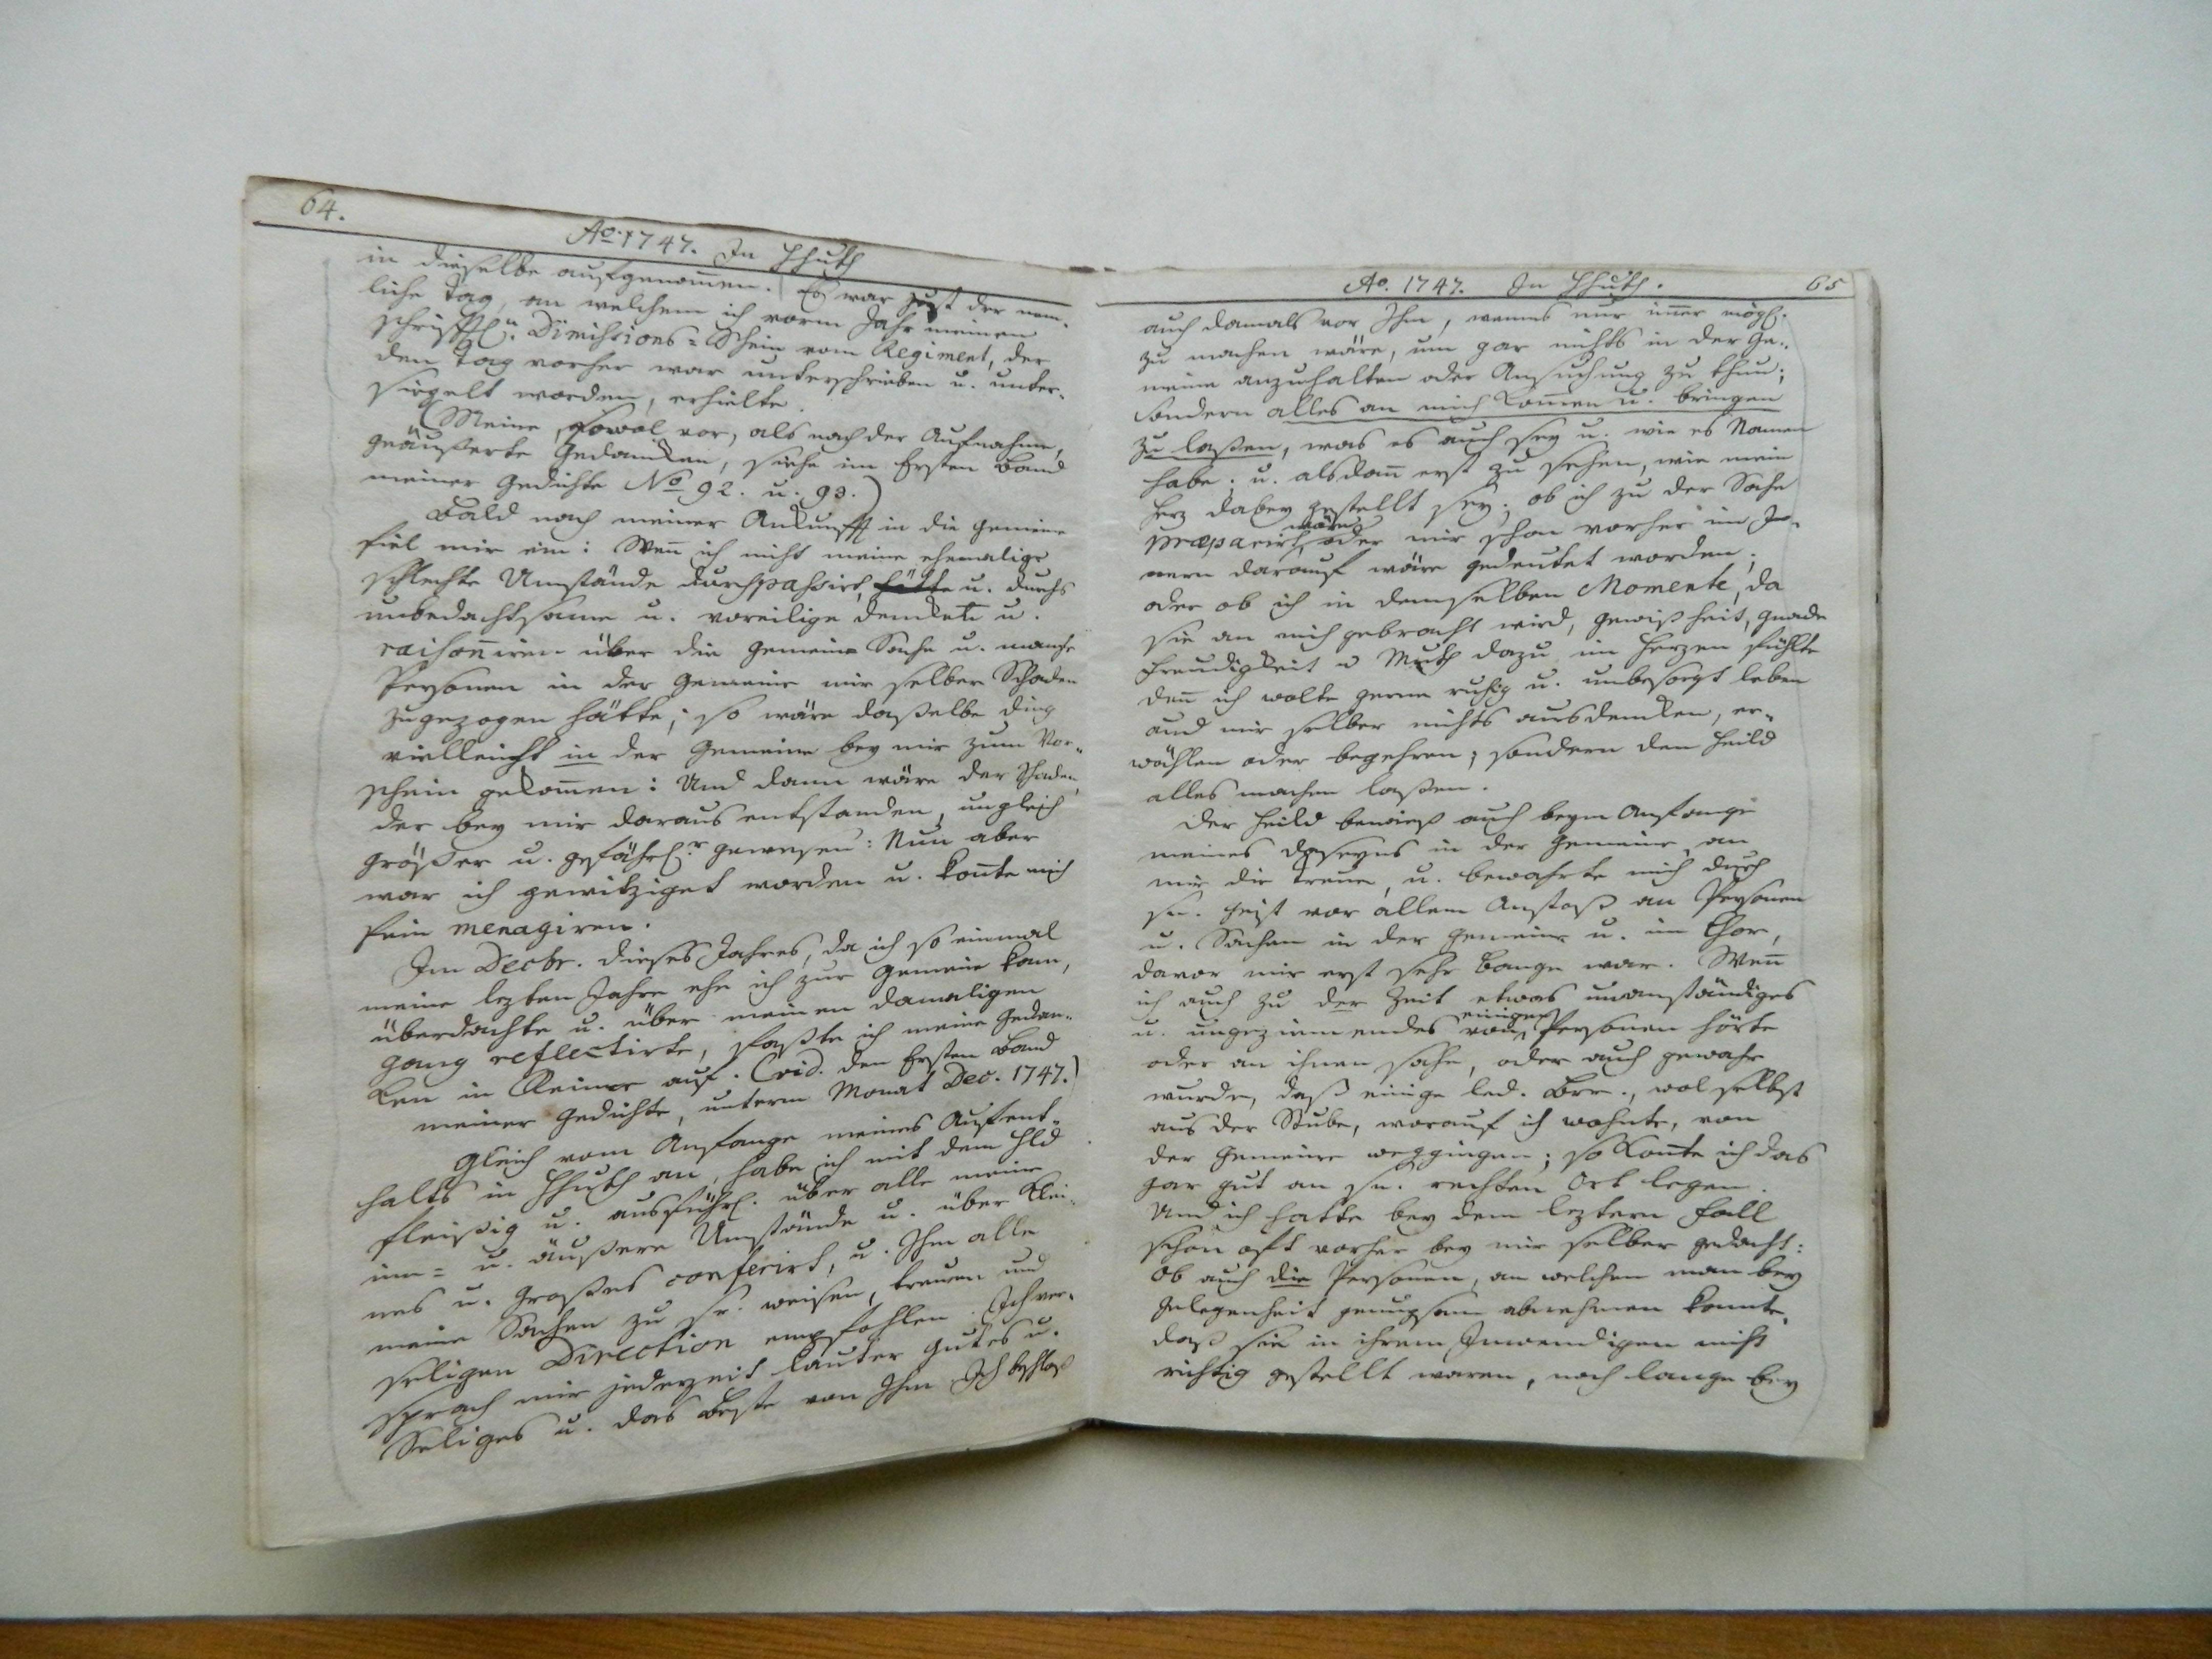 64.
Ao. 1747. In Hhuth
in dieselbe aufgenom̄en. Es war just der nem-
liche Tag, an welchem ich vorm Jahr meinen
schrifftl. Dimissions-Schein vom Regiment, der
den Tag vorher war unterschrieben u. unter-
siegelt worden, erhielte.
(Meine, sowol vor, als nach der Aufnahme,
geäußerte Gedancken, siehe im Ersten Band
meiner Gedichte No 92. u. 93.)
Bald nach meiner Ankunfft in die Gemeine
fiel mir ein: Wen̄ ich nicht meine ehemalige
schlechte Umstände durchpassirt, hätte u. durchs
unbedachtsame u. voreilige dencken u.
raison̄iren über die Gemein-Sache u. manche
Personen in der Gemeine mir selber Schaden
zugezogen hätte; so wäre daßelbe Ding
vielleicht in der Gemeine bey mir zum Vor-
schein gekom̄en: Und dann wäre der Schaden,
der bey mir daraus entstanden, ungleich
größer u. gefährl.r gewesen: Nun aber
war ich gewitziget worden u. kon̄te mich
fein menagiren.
Im Decbr. dieses Jahres, da ich so einmal
meine lezten Jahre ehe ich zur Gemeine kam,
überdachte u. über meinen damaligen
Gang reflectirte, faßte ich meine Gedan-
ken in Reimer auf. (vid. den Ersten Band
meiner Gedichte, unterm Monat Dec. 1747.)
Gleich vom Anfange meines Aufent-
halts in Hhuth an, habe ich mit dem Hld
fleißig u. ausführl. über alle meine
inn- u. äußere Umstände u. über Klei-
nes u. Großes conferirt, u. Ihm alle
meine Sachen zu sr. weisen, treuen und
seligen Direction empfohlen. Ich ver-
sprach mir jederzeit lauter Gutes u.
Seliges u. das Beste von Ihm. Ich beschloß
Ao. 1747. In Hhuth. 65
auch damals vor Ihm, wenns nur im̄er mögl.
zu machen wäre, um gar nichts in der Ge-
meine anzuhalten oder Ansuchung zu thun;
sondern alles an mich kom̄en u. bringen
zu laßen, was es auch sey u. wie es Namen
habe; u. alsdan̄ erst zu sehen, wie mein
Herz dabey gestellt sey; ob ich zu der Sache
præparirt wäre, oder mir schon vorher im In-
nern darauf wäre gedeutet worden;
oder ob ich in demselben Momente, da
sie an mich gebracht wird, Gewißheit, Gnade
Freudigkeit u Muth dazu im Herzen fühlte
den̄ ich wolte gerne ruhig u. unbesorgt leben
und mir selber nichts ausdencken, er-
wählen oder begehren; sondern den Heild
alles machen laßen.
Der Heild bewieß auch beym Anfange
meines Daseyns in der Gemeine, an
mir die Treue, u. bewahrte mich durch
sn. Geist vor allem Anstoß an Personen
u. Sachen in der Gemeine u. im Chor,
davor mir erst sehr bange war. Wen̄
ich auch zu der Zeit etwas unanständiges
u. ungeziemendes von einigen Personen hörte
oder an ihnen sahe, oder auch gewahr
wurde, daß einige led. Brr., wol selbst
aus der Stube, worauf ich wohnte, von
der Gemeine weggingen; so kon̄te ich das
gar gut an sn. rechten Ort legen.
Und ich hatte bey dem leztern Fall
schon oft vorher bey mir selber gedacht:
Ob auch die Personen, an welchen man bey
Gelegenheit genugsam abnehmen konte,
daß sie in ihrem Inwendigen nicht
richtig gestellt waren, noch lange bey